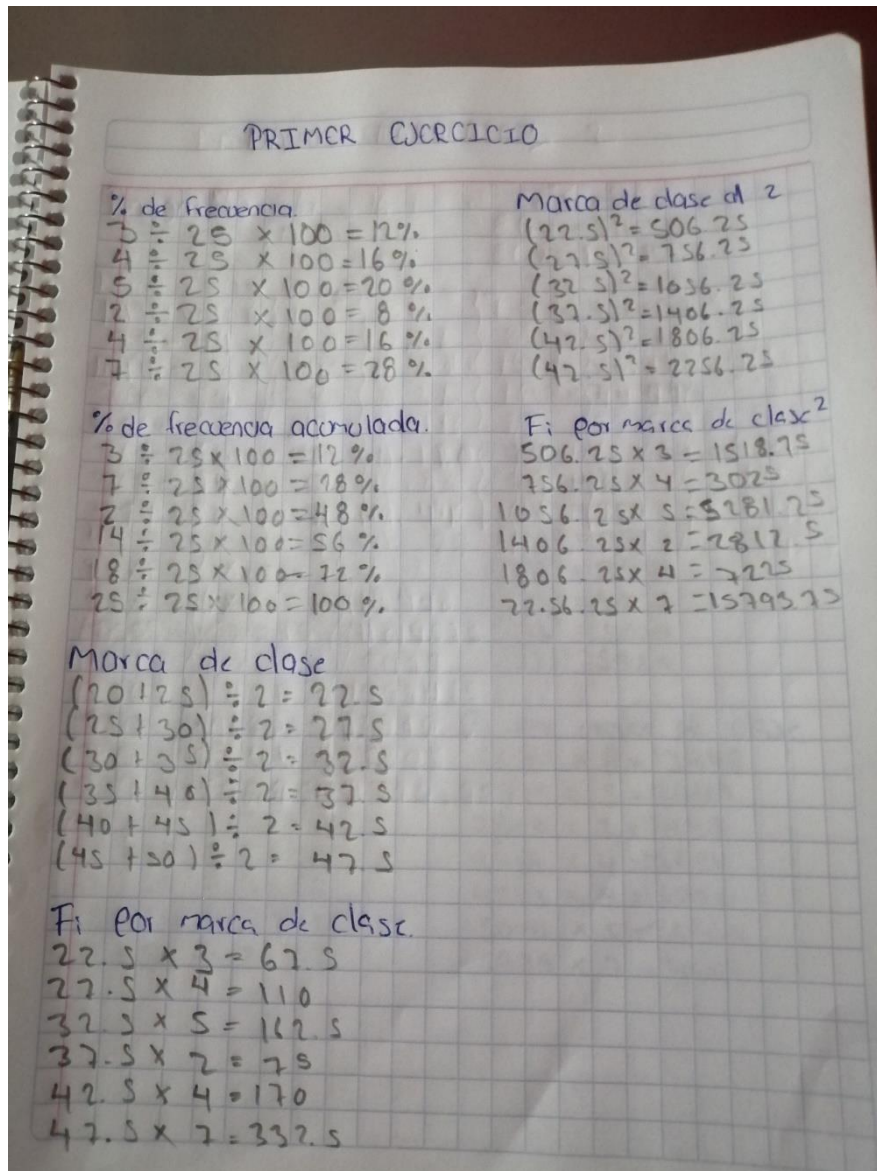 PRIMER EJERCICIO
% de frecuencia.
3 ÷ 25 × 100 = 12%.
4 ÷ 25 × 100 = 16%.
5 ÷ 25 × 100 = 20%.
2 ÷ 25 × 100 = 8 %.
4 ÷ 25 × 100 = 16 %.
7 ÷ 25 × 100 = 28 %.
% de frecuencia acomulada.
3 ÷ 25 × 100 = 12 %
7 ÷ 25 × 100 = 28 %.
2 ÷ 25 × 100 = 48 %.
14 ÷ 25 × 100 = 56 %
18 ÷ 25 × 100 = 72 %
25 ÷ 25 × 100 = 100 %.
Marca de clase
(20+25) ÷ 2 = 22.5
(25+30) ÷ 2 = 27.5
(30+35) ÷ 2 = 32.5
(35+40) ÷ 2 = 37.5
(40+45) ÷ 2 = 42.5
(45+50) ÷ 2 = 47.5
Fi por marca de clase.
22.5 × 3 = 67.5
27.5 × 4 = 110
32.5 × 5 = 162.5
37.5 × 2 = 75
42.5 × 4 = 170
47.5 × 7 = 332.5
Marca de clase al 2
(22.5)² = 506.25
(27.5)² = 756.25
(32.5)² = 1056.25
(37.5)² = 1406.25
(42.5)² = 1806.25
(47.5)² = 2256.25
Fi por marca de clase²
506.25 × 3 = 1518.75
756.25 × 4 = 3025
1056.25 × 5 = 5281.25
1406.25 × 2 = 2812.5
1806.25 × 4 = 7225
22.56.25 × 7 = 15793.75